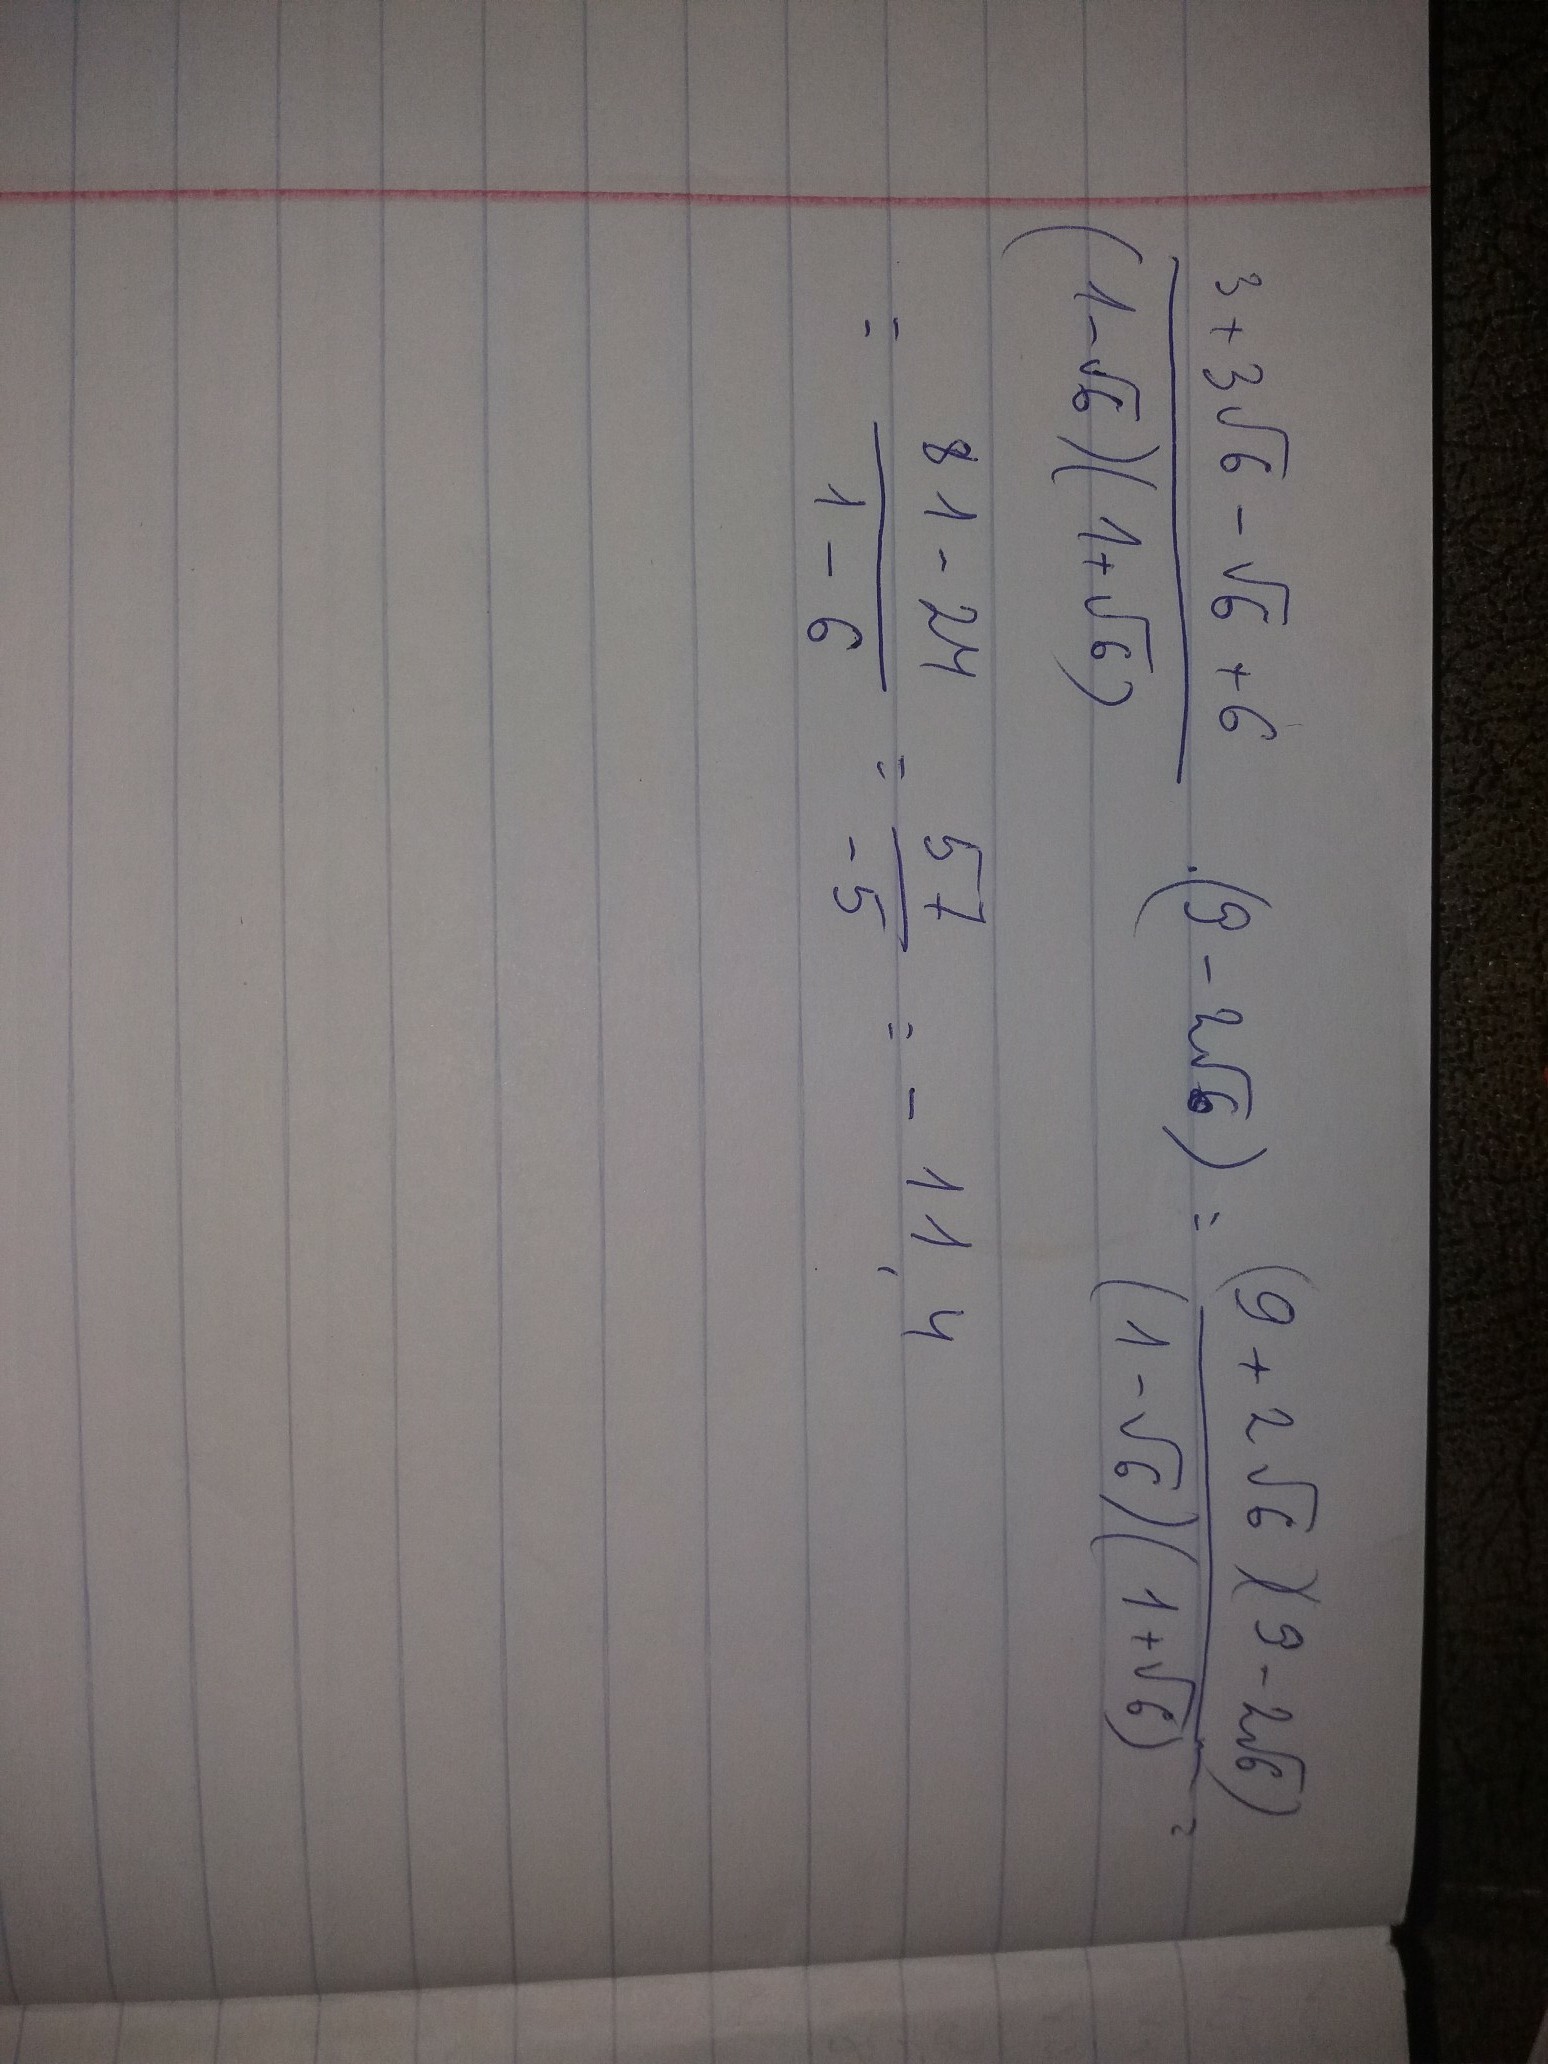 3 + 3√6 - √6 + 6 / (1-√6)(1+√6) · (9 - 2√6) = (9 + 2√6)(9 - 2√6) / (1 - √6)(1+√6) =
= 81 - 24 / 1 - 6 = 57 / -5 = - 11,4